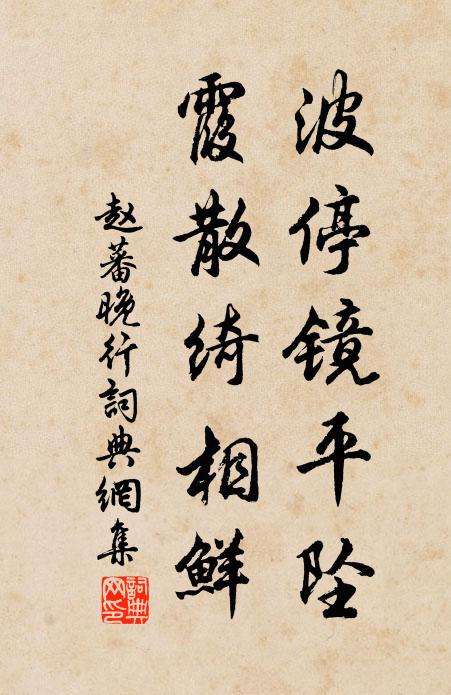 波停镜平坠
霞散绮相鲜
赵蕃晚行詞典網集
詞典网印